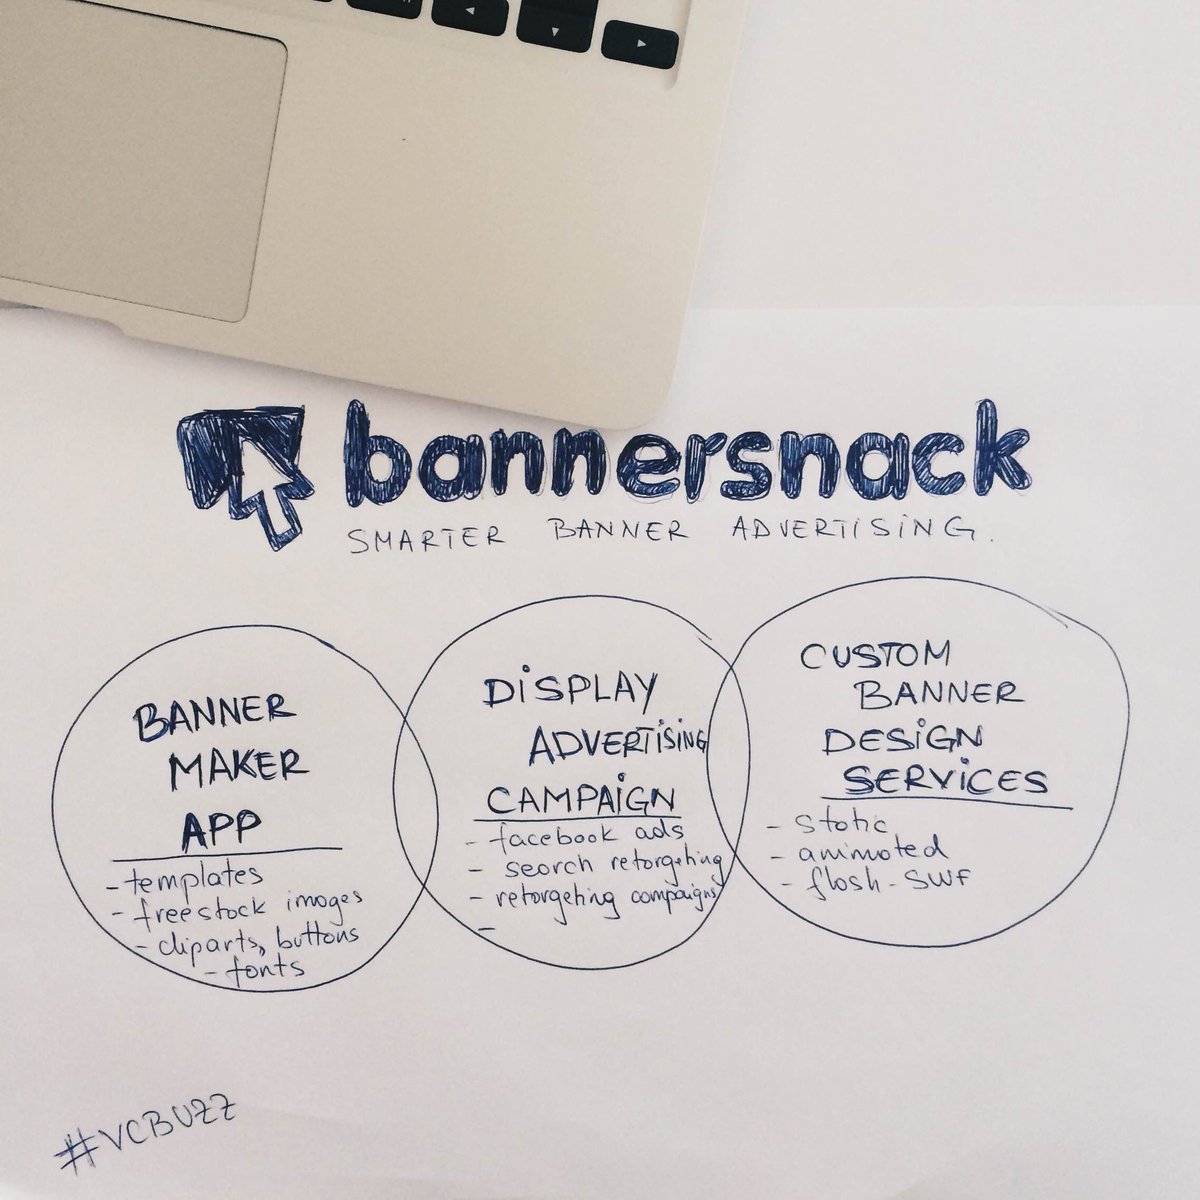 bannersnack
SMARTER BANNER ADVERTISING.
BANNER
MAKER
APP
- templates
- free stock images
- cliparts, buttons
- fonts
DISPLAY
ADVERTISING
CAMPAIGN
- facebook ads
- search retargeting
- retargeting campaigns
-
CUSTOM
BANNER
DESIGN
SERVICES
- static
- animated
- flash - SWF
#VCBUZZ